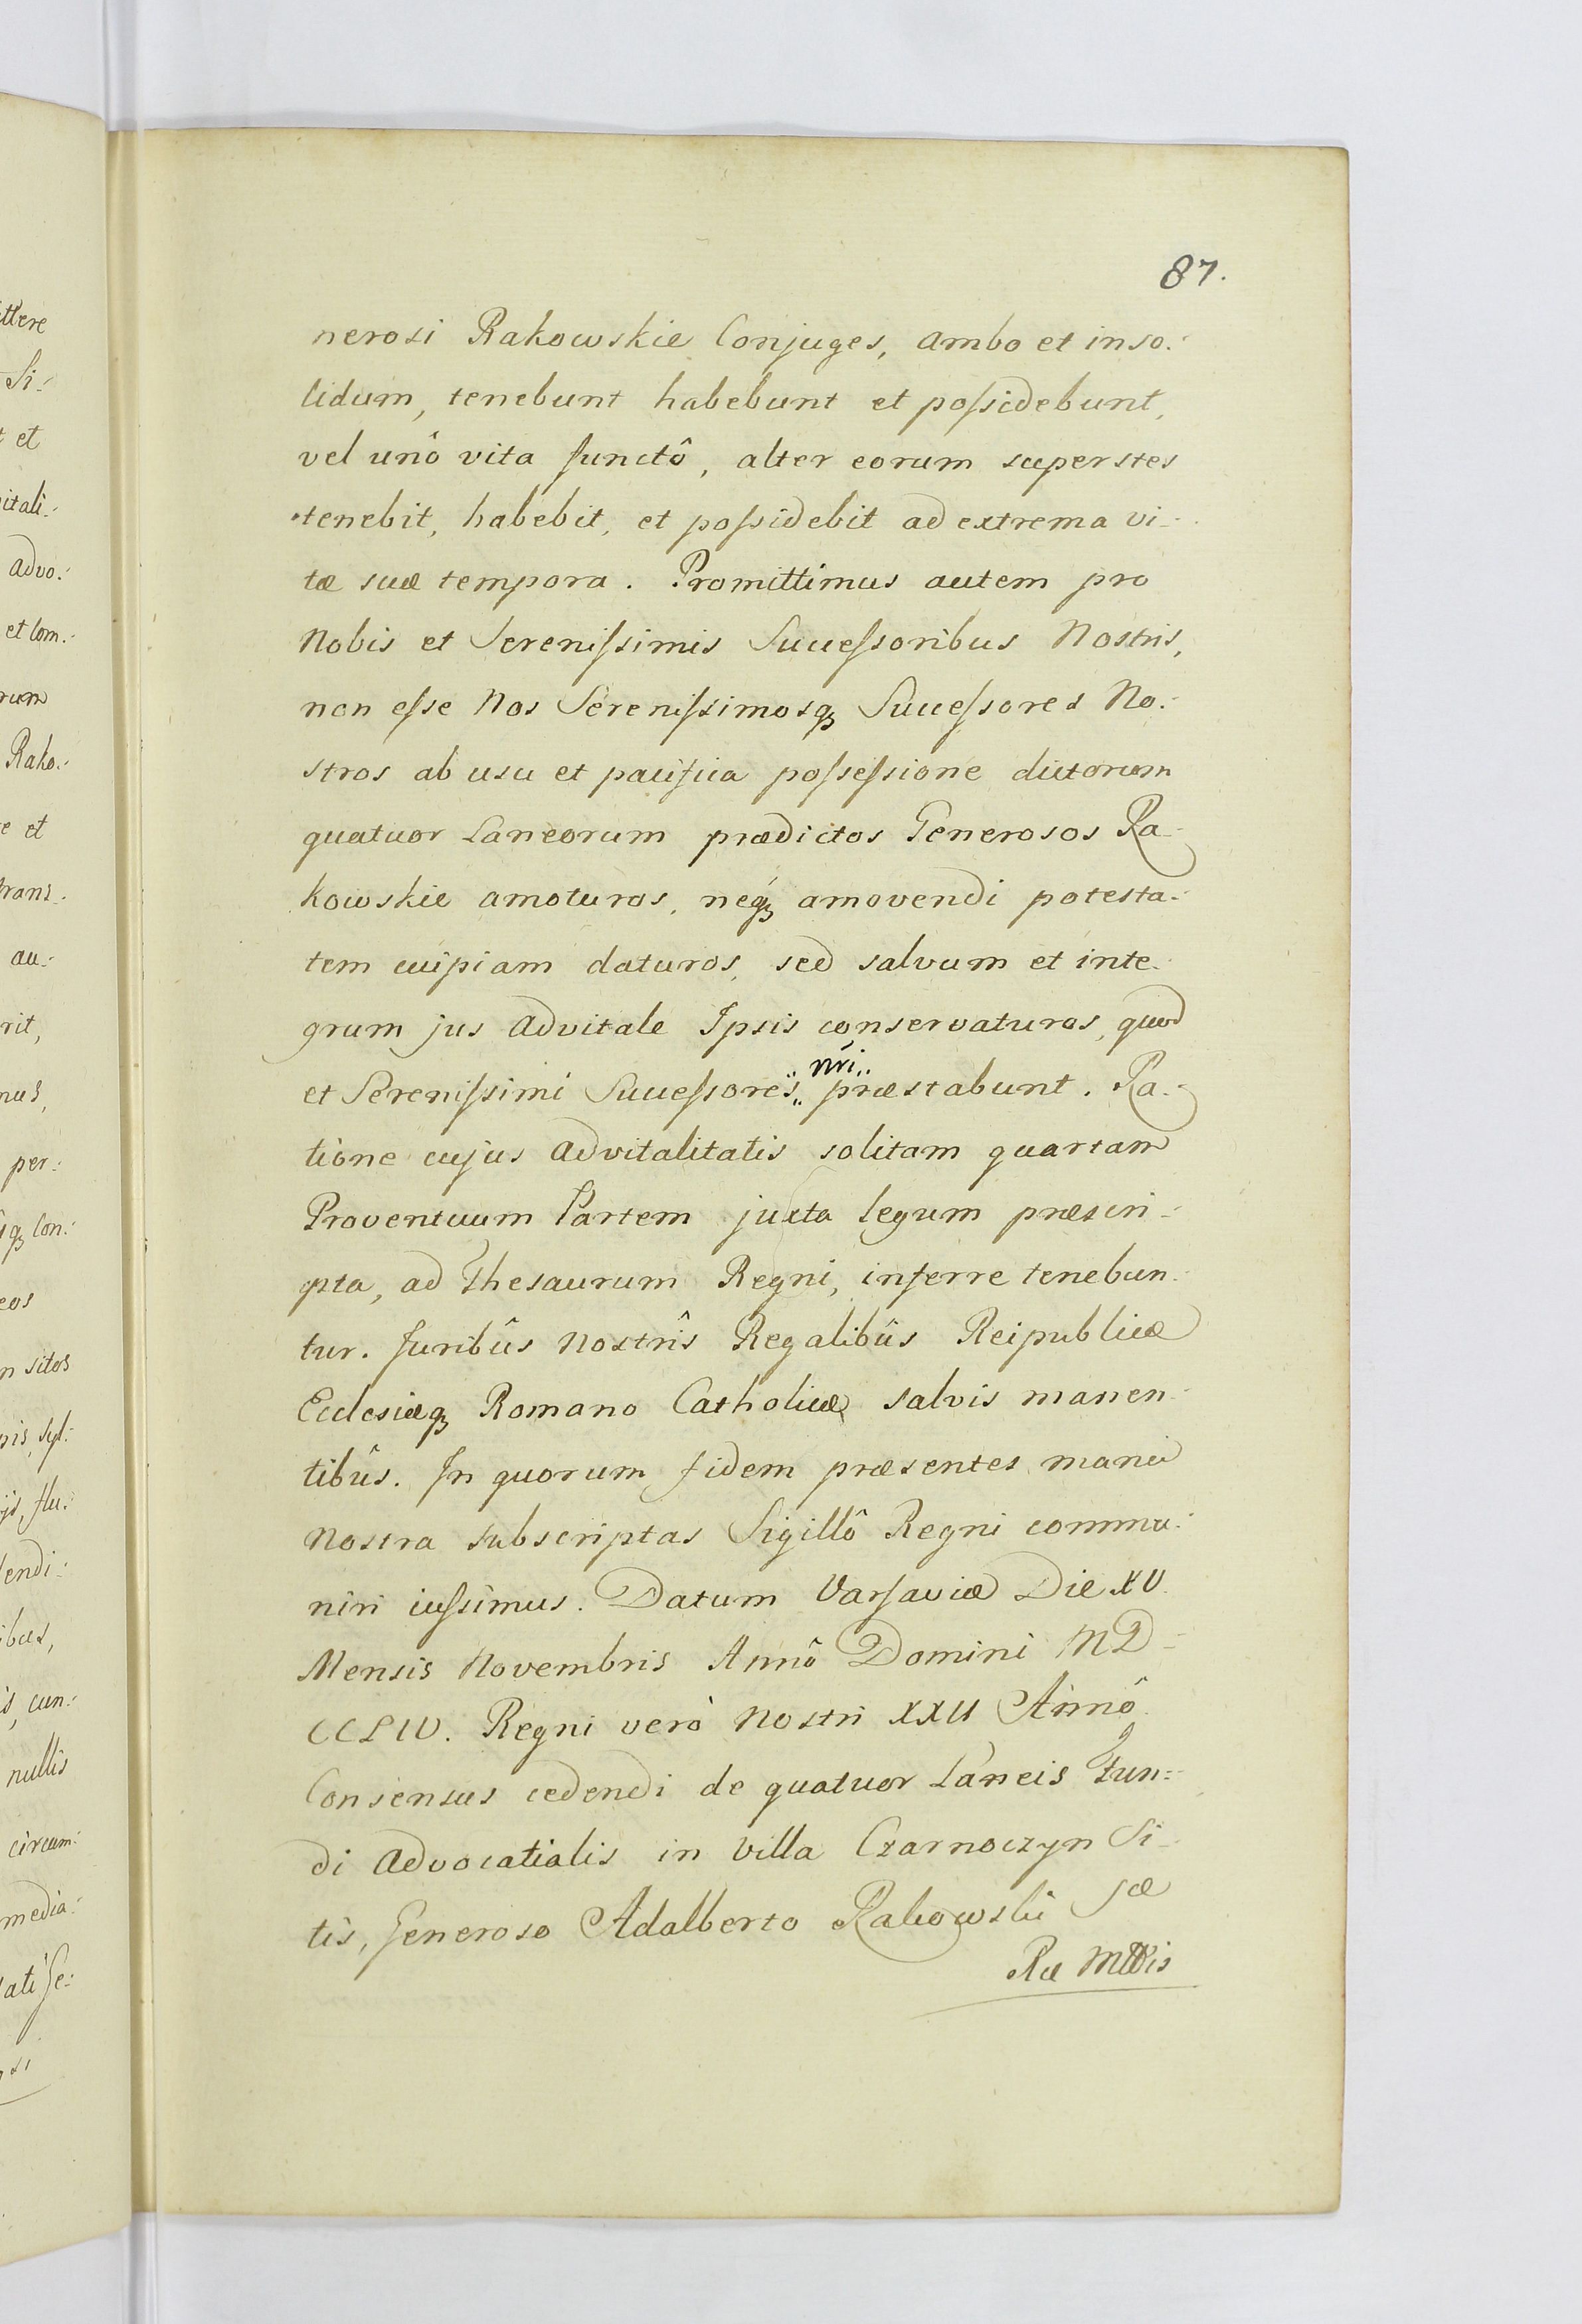 87.
nerosi Rakowskie Conjuges, ambo et inso-
lidum, tenebunt habebunt et poſsidebunt,
vel unô vita functô, alter eorum superstes
tenebit, habebit, et poſsidebit ad extrema vi-
tæ suæ tempora. Promittimus autem pro
Nobis et Sereniſsimis Succeſsoribus Nostris,
non eſse Nos Sereniſsimosq; Succeſsores No-
stros ab usu et pacifica poſseſsione dictorum
quatuor Laneorum prædictos Generosos Ra-
kowskie amoturos, neq; amovendi potesta-
tem cuipiam daturos, sed salvum et inte-
grum jus advitale Ipsis conservaturos, quod
et Sereniſsimi Succeſsores nri præstabunt. Ra-
tione cujus advitalitatis solitam quartam
Proventuum Partem juxta legum præscri-
pta, ad Thesaurum Regni, inferre tenebun-
tur. Juribûs Nostrîs Regalibûs Reipublicæ
Ecclesiæq; Romano Catholicæ salvis manen-
tibûs. In quorum fidem præsentes manu
Nostra subscriptas Sigillô Regni commu-
niri iuſsimus. Datum Varsaviæ Die XV.
Mensis Novembris Annô Domini MD-
CCLIV. Regni verò Nostri XXII Annô
Consensus cedendi de quatuor Laneis Fun-
di Advocatialis in Villa Czarnoczyn Si-
tis, Generoso Adalberto Rakowski Sæ
Ræ Mttis
ttere
Si-
et
itali-
advo-
et Com-
rum
Rako-
e et
trans-
au-
rit,
mus,
per-
q; Con-
eos
n sitos
nis, Syl-
ijs, flu-
endi-
ibus,
s, cun-
nullis
circum-
media-
ati Ge-